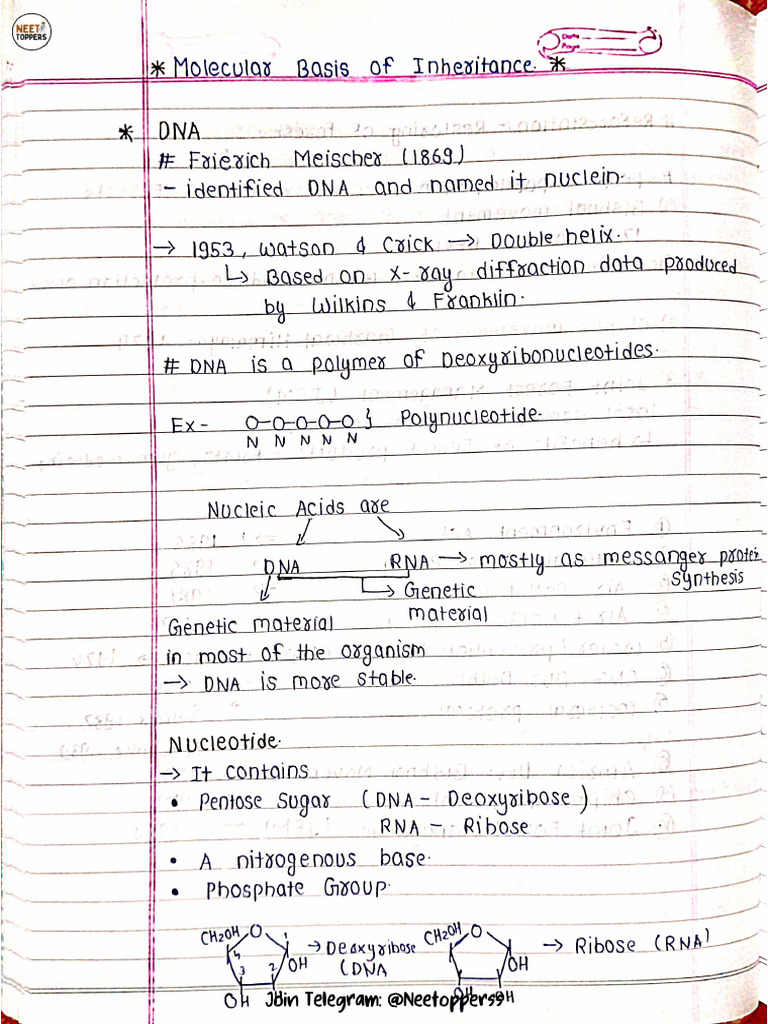 NEET
TOPPERS
* Molecular Basis of Inheritance. *
* DNA
# Frierich Meischer (1869)
- identified DNA and named it nuclein.
→ 1953, Watson & Crick → Double helix.
↳ Based on x-ray diffraction data produced
by Wilkins & Franklin.
# DNA is a polymer of Deoxyribonucleotides.
Ex- O-O-O-O-O } Polynucleotide.
N N N N N
Nucleic Acids are
DNA RNA → mostly as messanger protei
synthesis
↳ Genetic
material
Genetic material
in most of the organism
→ DNA is more stable.
Nucleotide.
→ It contains
• Pentose Sugar (DNA - Deoxyribose)
RNA - Ribose
• A nitrogenous base.
• Phosphate Group.
CH2OH O 1 4 3 2 OH OH → Deoxyribose
(DNA
CH2OH O OH OH OH → Ribose (RNA)
Join Telegram: @Neetoppers